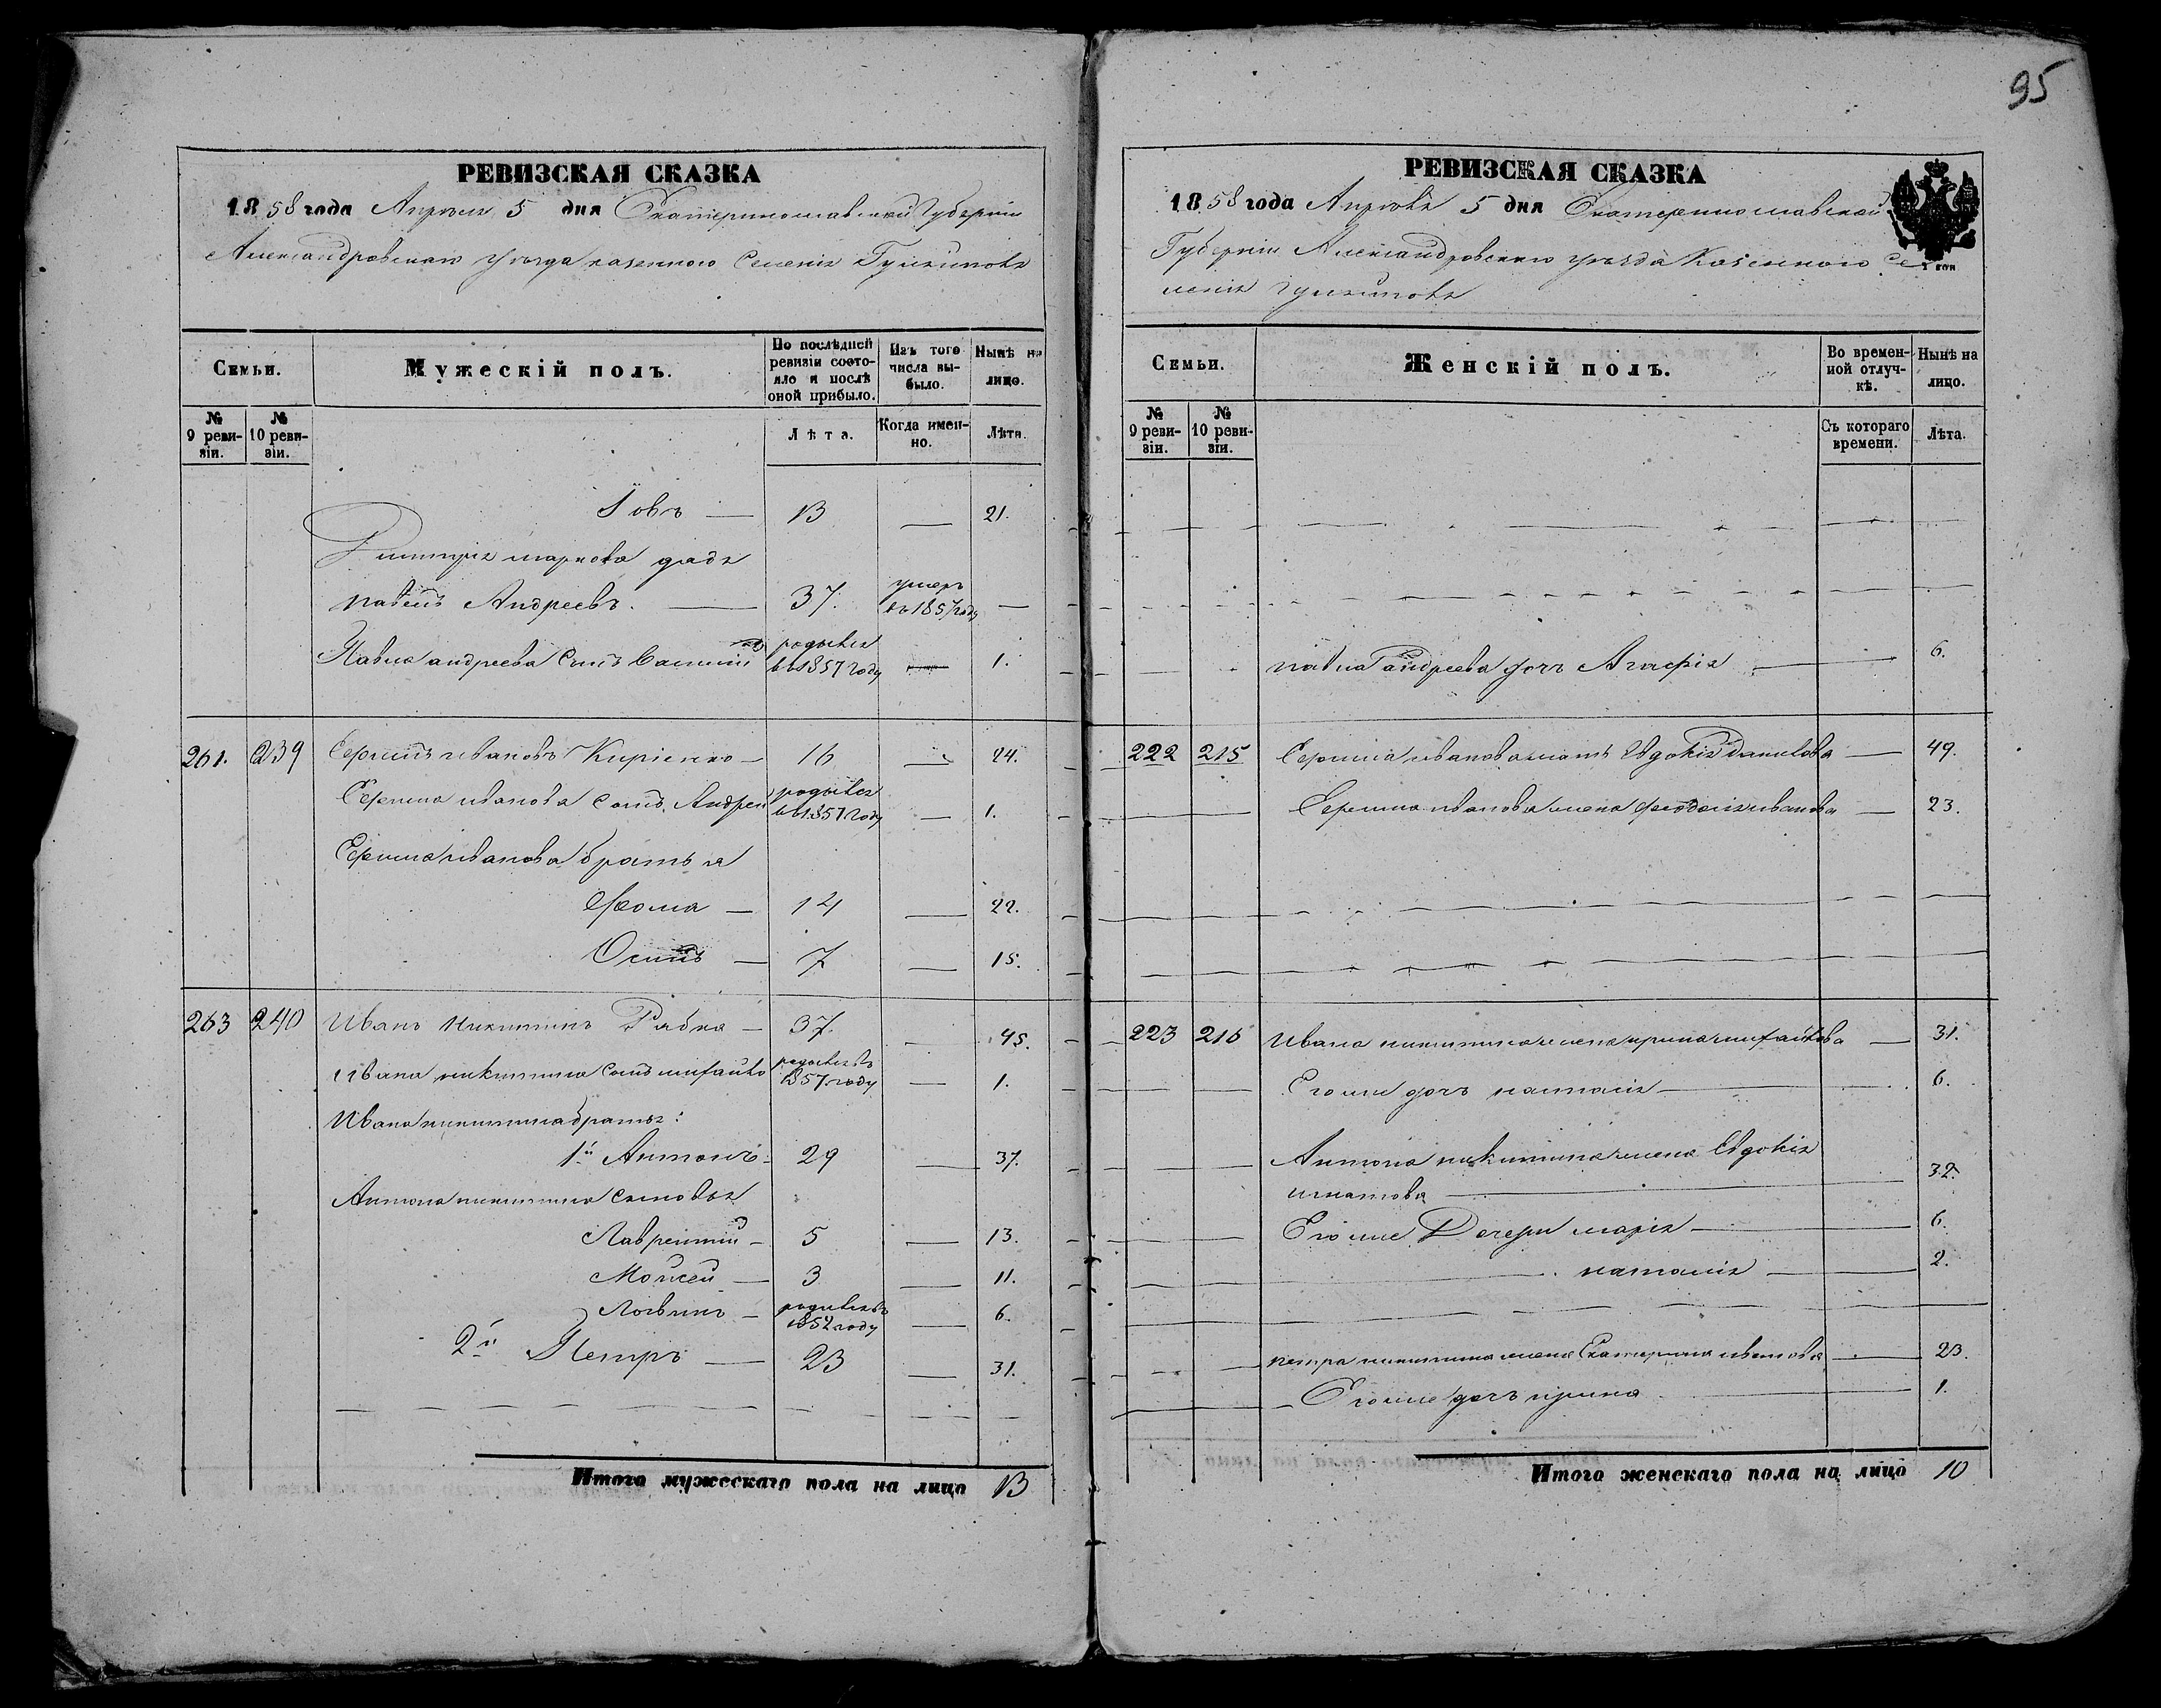 95
РЕВИЗСКАЯ СКАЗКА
1858 года Апреля 5 дня Екатеринославской Губернии
Александровского уезда казенного Селения Гуляйполя
Семьи.
Мужескій полъ.
По послѣдней ревизіи состояло и послѣ оной прибыло.
Изъ того числа выбыло.
Нынѣ на лицо.
№ 9 ревизіи.
№ 10 ревизіи.
Лѣта.
Когда именно.
Лѣта.
Іовъ — 13 — 21.
Дмитрія маркова дядя
павелъ Андреевъ. — 37. умеръ въ 1857 году —
Павла андреева Сынъ Василій родывся въ 1857 году — 1.
261. 239 Ивановъ Кирiенко — 16 — 24.
иванова Сынъ Андрей родывся въ 1857 году — 1.
иванова братья
Фома — 14 — 22.
Осипъ — 7 — 15.
263 240 Иванъ Никитинъ Рябка — 37. — 45.
Ивана никитина Сынъ михайло родывся въ 1857 году — 1.
Ивана никитина братья:
1й Антонъ 29 — 37.
Антона никитина Сыновья
Лаврентій — 5 — 13.
Мойсей — 3 — 11.
Логвинъ — родывся въ 1852 году — 6.
2й Петръ — 23 — 31.
Итого мужескаго пола на лицо 13
РЕВИЗСКАЯ СКАЗКА
1858 года Апреля 5 дня Екатеринославской
Губерніи Александровского уезда Казенного Се-
ленія Гуляйполя
Семьи.
Женскій полъ.
Во временной отлучкѣ.
Нынѣ на лицо.
№ 9 ревизіи.
№ 10 ревизіи.
Съ котораго времени.
Лѣта.
павла андреева дочъ Агафія — 6.
222 215 иванова мать Евдокія Данилова — 49.
иванова жена феодосія иванова — 23.
223 216 Ивана никитина жена ирина михайлова — 31.
Его же дочъ наталія — 6.
Антона никитина жена Евдокія
игнатова — 32.
Его же Дочери марія — 6.
наталія — 2.
петра никитина жена Екатерина иванова — 23.
Его же дочъ ирина — 1.
Итого женскаго пола на лицо 10